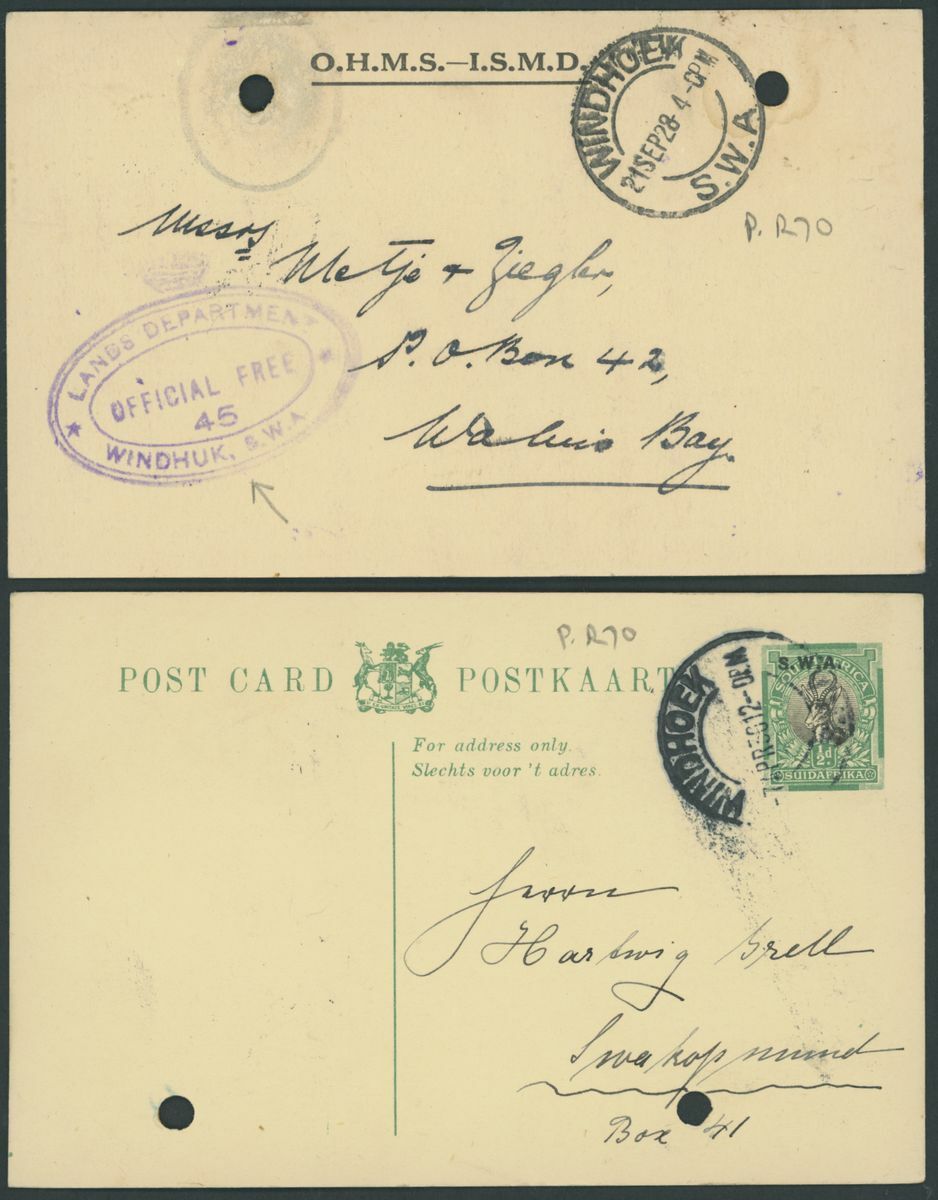 O.H.M.S.—I.S.M.D.
WINDHOEK
21 SEP 28 4-0PM
S.W.A
P. R70
Messrs
Metje + Ziegler,
P.O. Box 42,
Walvis Bay.
LANDS DEPARTMENT
OFFICIAL FREE
45
WINDHUK, S.W.A.
P. R70
POST CARD POSTKAART
WINDHOEK
12-0PM
S.W.A.
½d
SUIDAFRIKA
For address only.
Slechts voor 't adres.
Herrn
Hartwig Brell
Swakopmund
Box 41